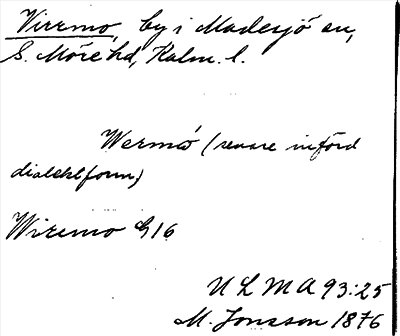 Virrmo, by i Madesjö sn,
S. Möre hd, Kalm. l.
Wermo (senare införd
dialektform)
Wiremo G16
ULMA 93:25
M. Jonsson 1876